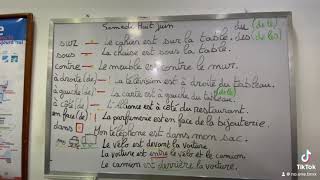 Samedi Huit juin
du (de le)
des (de les)
sur Le cahier est sur la table.
sous La chaise est sous la table.
contre Le meuble est contre le mur.
à droite (de) La télévision est à droite du tableau.
à gauche (de) La carte est à gauche du tableau. (de le)
à côté (de) L'Alliance est à côté du restaurant.
en face (de) La parfumerie est en face de la bijouterie.
dans Mon téléphone est dans mon sac.
Le vélo est devant la voiture
La voiture est entre le vélo et le camion
Le camion est derrière la voiture.
TikTok